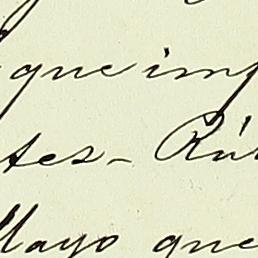 que imp
tes- Rús
Mayo que